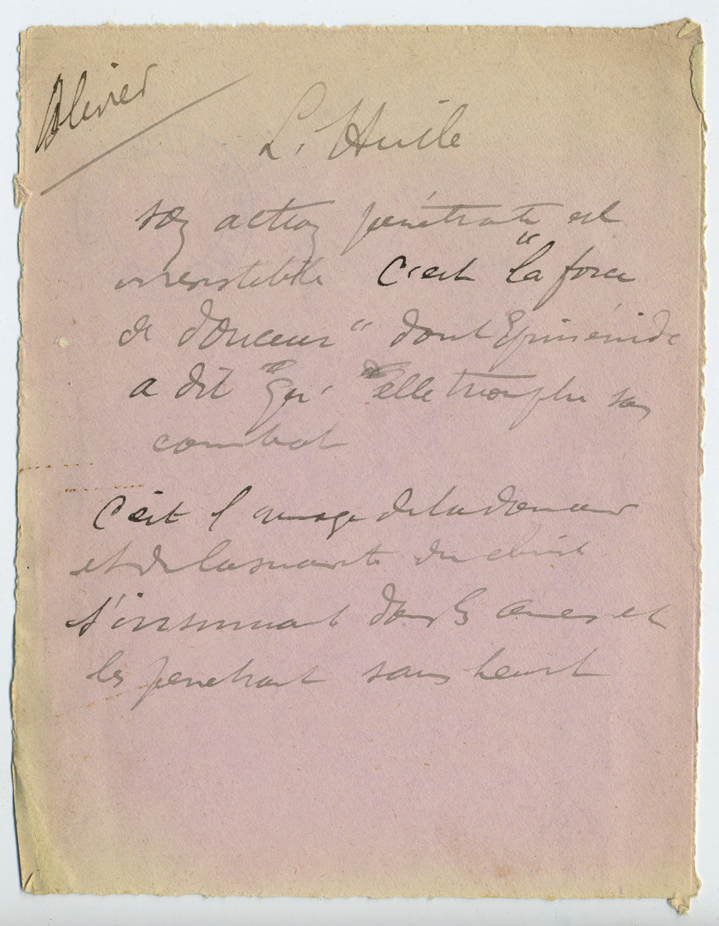 Olivier
L'Huile
son action pénétrante est
irresistible c'est "la force
de douceur" dont Epiménide
a dit qu' elle triomphe sans
combat
C'est l'image de la douceur
et de la suavité du christ
s'insinuant dans les âmes et
les penetrant sans heurt